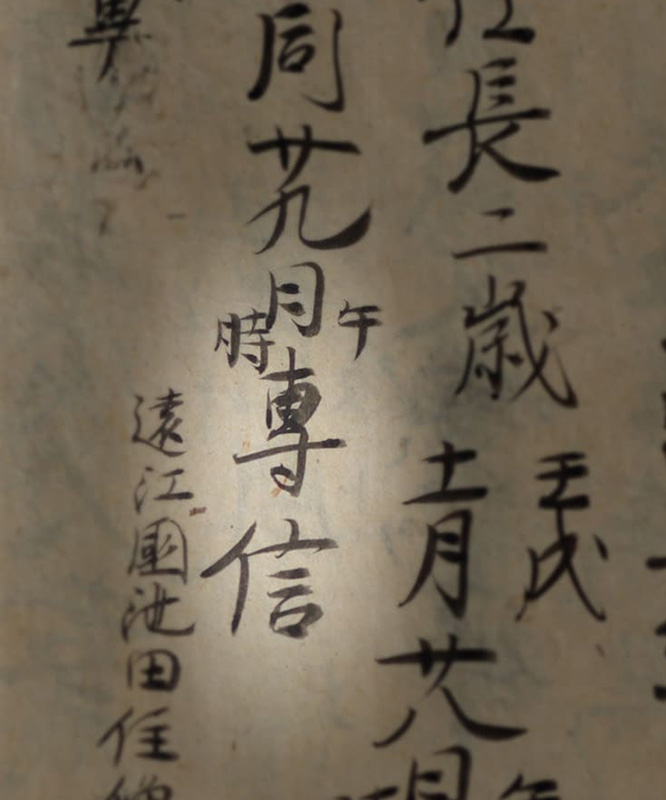 長二歳壬戌十一月廿八日午
同廿九日午時專信
遠江國池田住
專